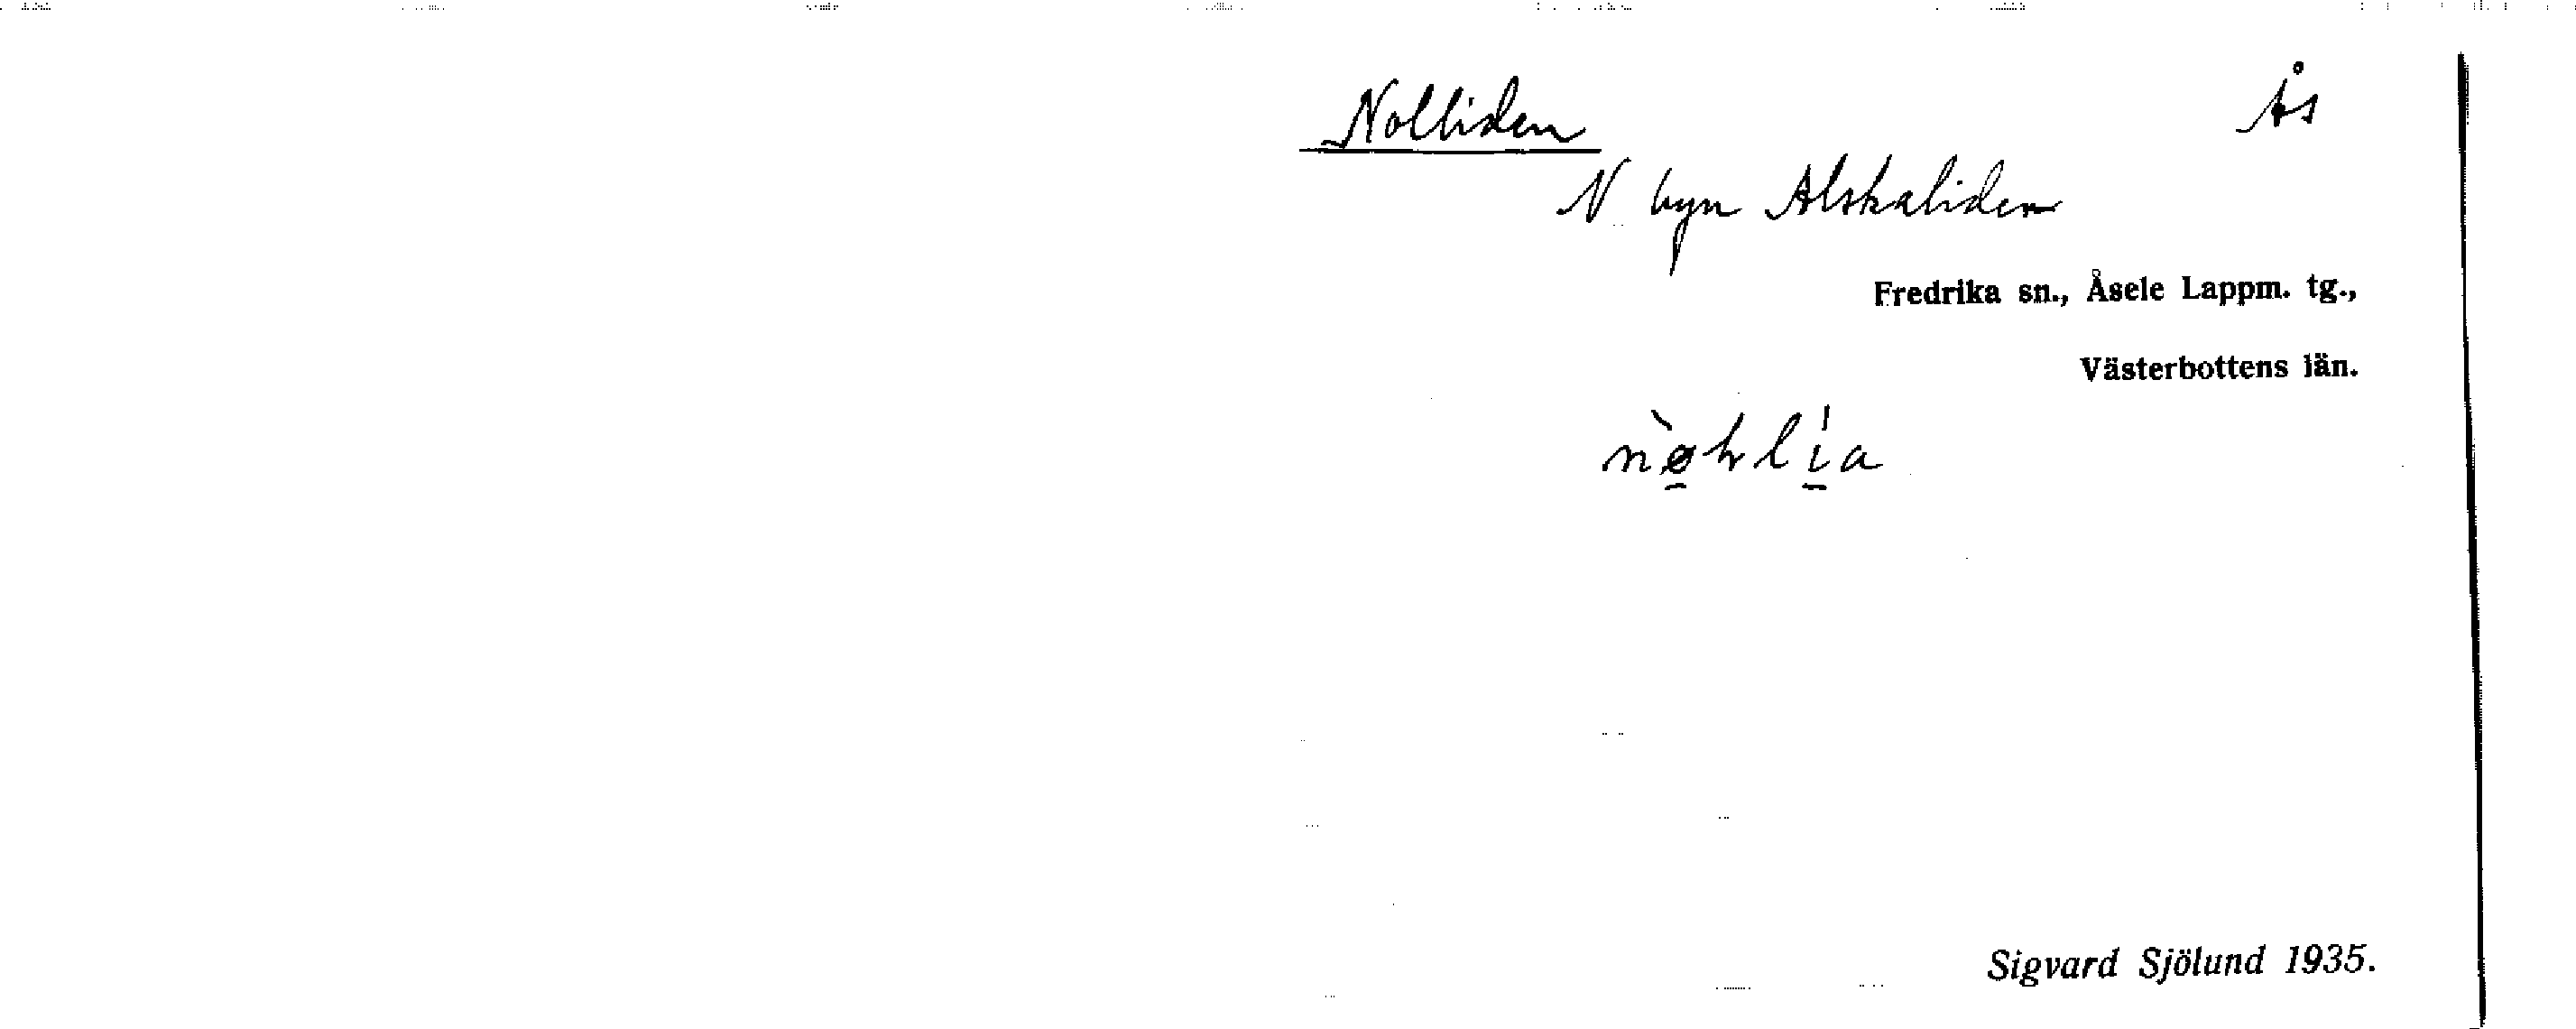 Nolliden Ås
N byn Alskaliden
Fredrika sn., Åsele Lappm. tg.,
Västerbottens län.
Sigvard Sjölund 1935.